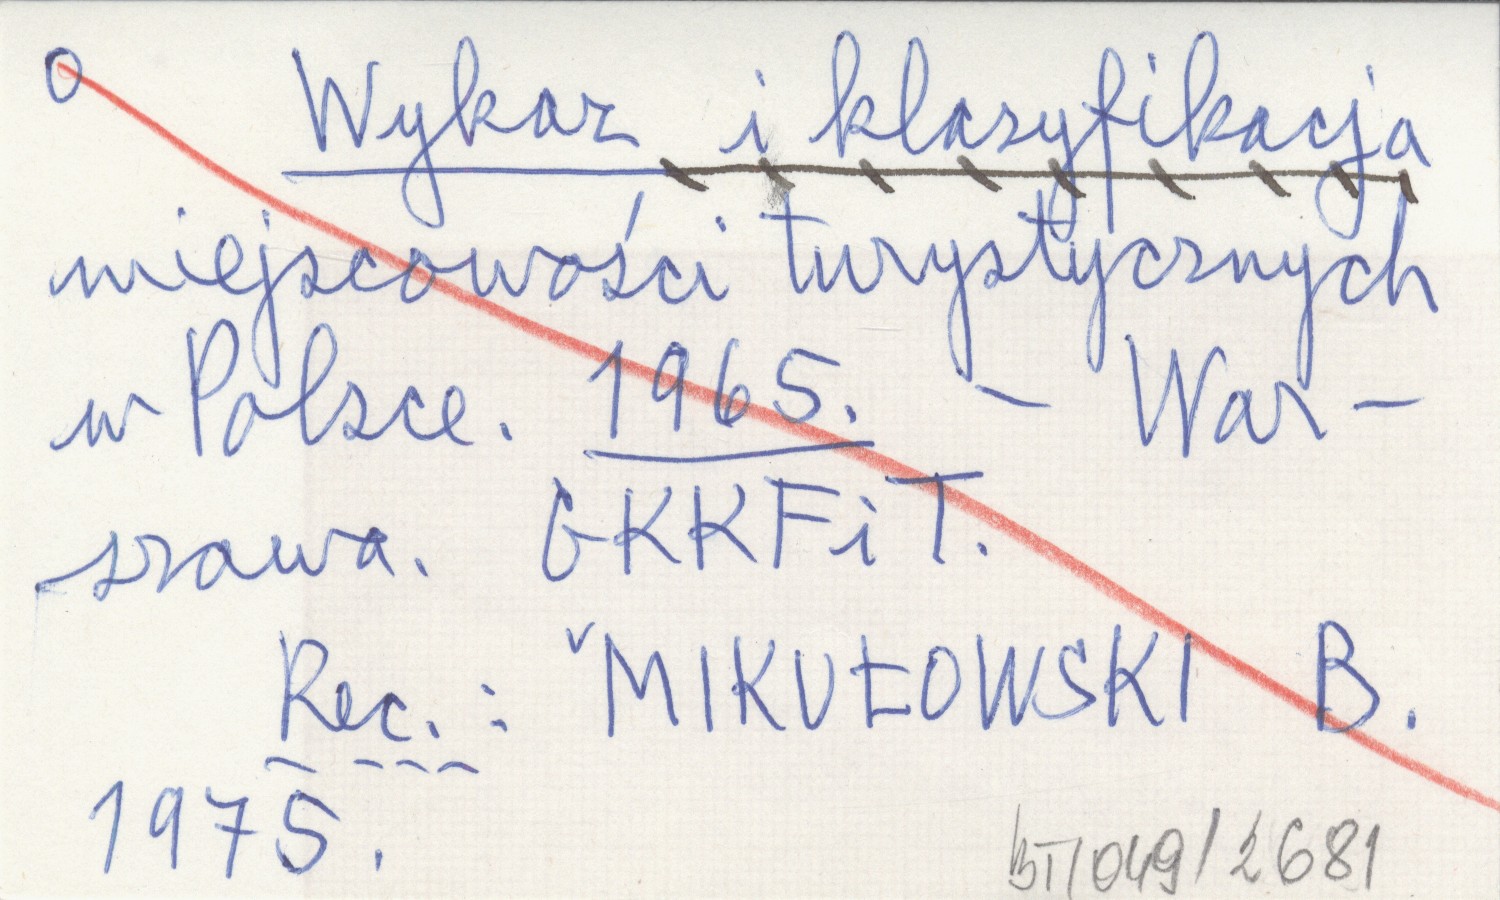 O Wykaz i klasyfikacja
miejscowości turystycznych
w Polsce. 1965. – War–
szawa. GKKFiT.
Rec. : ˇMIKUŁOWSKI B.
1975.
BT/049/2681